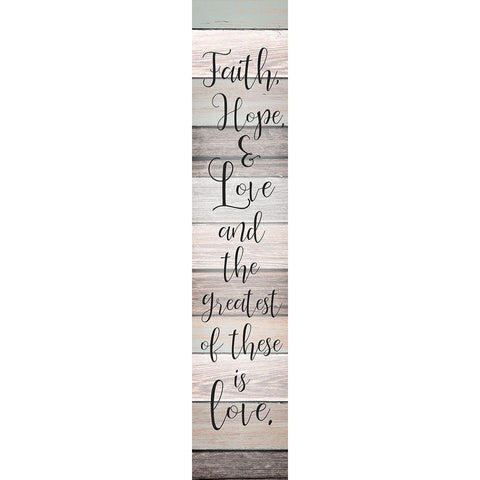 Faith,
Hope,
&
Love
and
the
greatest
of these
is
love.